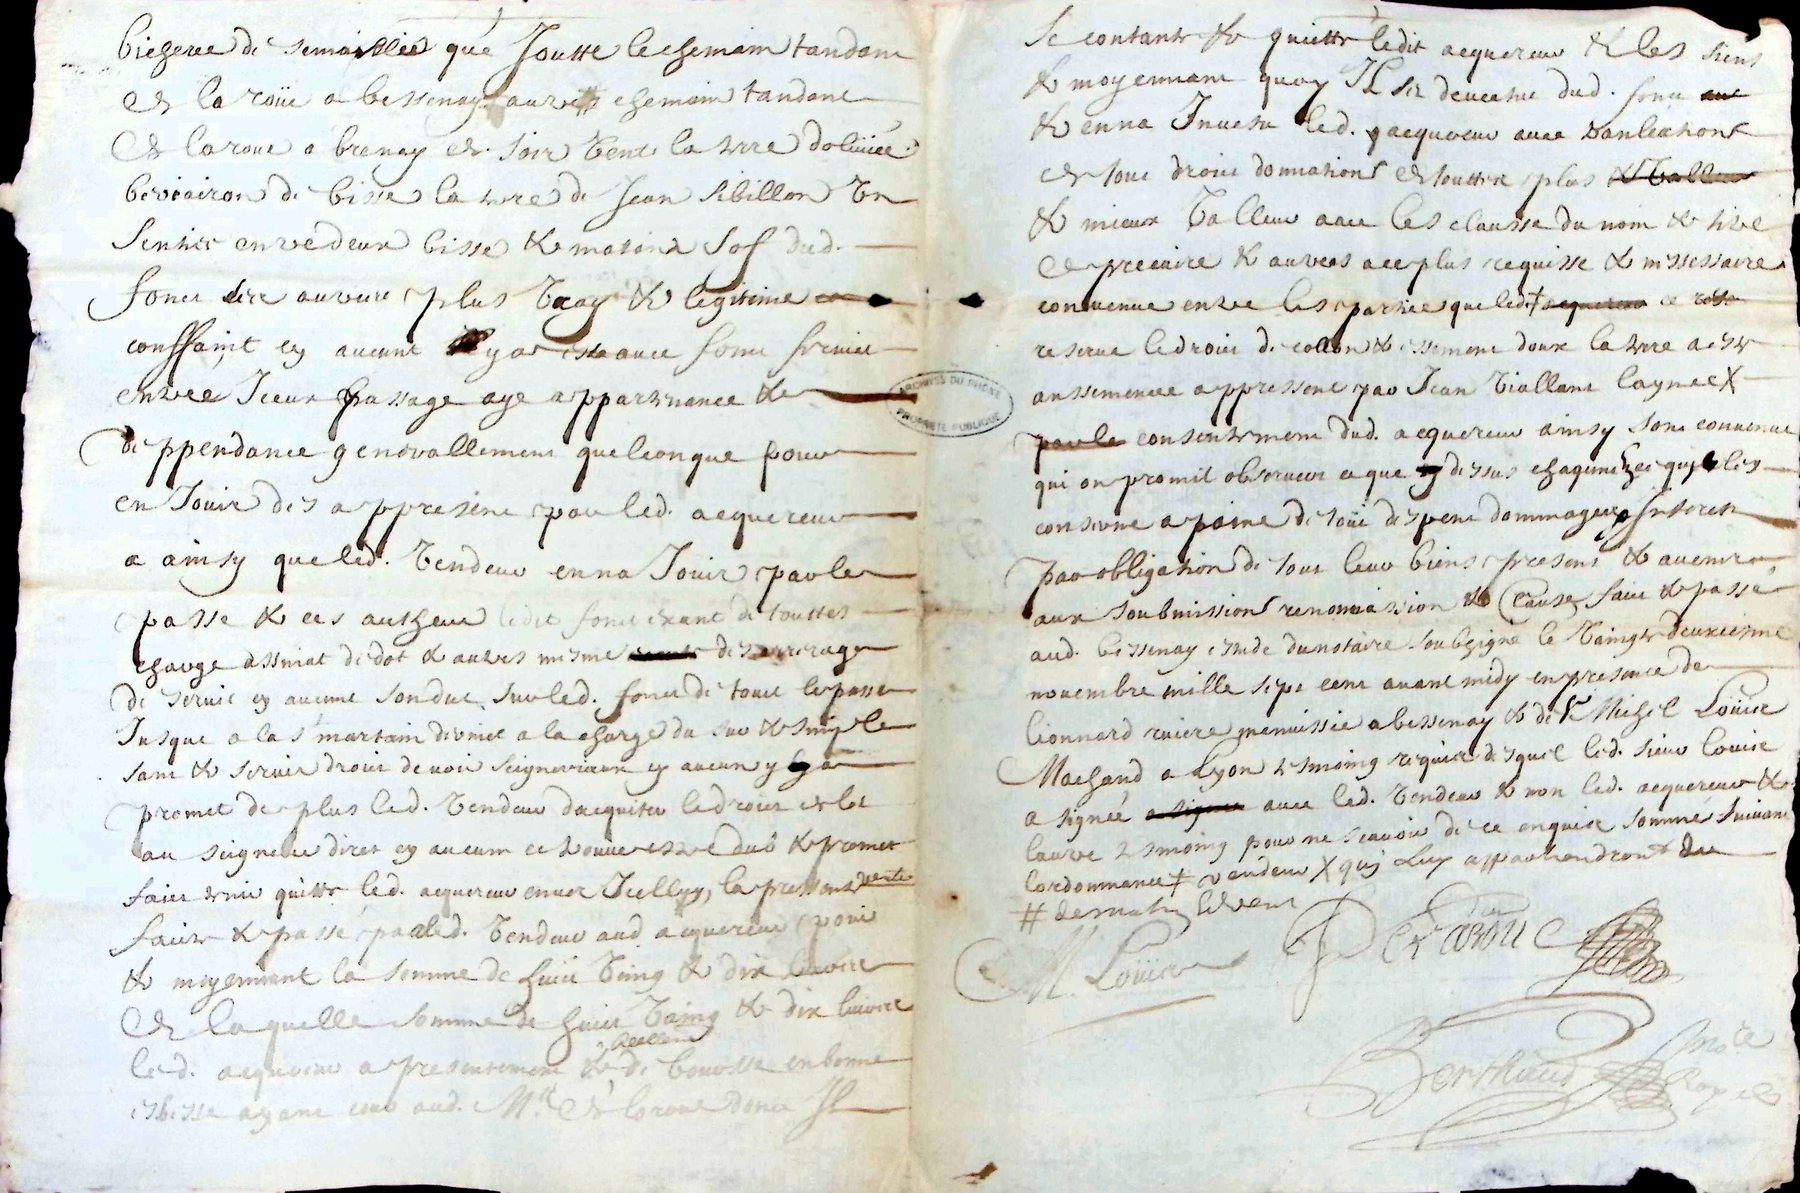 bicheree de semailles que Joutte le chemain tandant
de la roüe a bessenay aurtes chemain tandant
de la roue a brenay de soir vent la terre dolivièe
berviairon de bisse la terre de Jean Sibillon Un
Sentier entredeux bisse & matain Sof dud.
fond dire auture plus vray & legitime
conffaint cy aucunt y at estoavec fond servict
entreé Jceux passage aye appartenance &
deppendance genorallement quelconque pour
en Jouir des appresent par led. acquereur
a ainsy que led. Vendeur enna Jouir par le
passe & ces autheur ledit fond exant de touttes
charge assinat de dot & autres mesme des arrerage
de servic cy aucunt son due sur led. fond de tout le passe
Jusque a la st martain dernier a la charge du
sant & servis droit devoir seigneriaux cy aucun y a
promet de plus led. Vendeur dacquiter le droit de lot
au seigneur diret cy aucum ce trouve estre dub & promet
faire tenir quitte led. acquereur enver Jcelluy, la presente vente
faite & passé par led. Vendeur aud acquereur pour
& moyennant la somme de huit Vaing & dix livre
de laquelle somme de huit Vaing & dix livre
led. acquereur a presentement & reellem de bourse en bonne
espesse ayant cour aud. Mre de laroue dont Jl
Se contante & quitte ledit acquereur & les siens
& moyennant quoy Jl ser devestu dud. fond
& enna Jnvestu led. acquereur avec translations
de tout droit donnations de touttes plus
& mieux Valleur avec les clausse du nom & titre
de precaire & autres ace plus requisse & nessessaire
convenue entre les partiee que led. † acquereur ce
reserve le droit de collon & essement dont la terre a este
anssemencée appressent par Jean Viallant laynee X
par le consentement dud. acquereur ainsy sont convenue
qui on promit observer ce que dessus chaqunt ce quy les
conserne a paine de toüt despent dommages Jnterest
par obligation de tout leur biens present & avenir
aux soubmissions renonciassion & Clause, fait & passé
aud. bessenay estude du notaire soubsigné le Vaingte deuxiesme
novembre mille sept cent avant midy en presence de
lionnard riviere menuissie a bessenay & de Sr Michel Loüice
Machand a Lyon tesmoing requis desquel led. sieur Louice
a signeé a signee avec led. Vendeur & non led. acquereur &
lautre tesmoing pour ne scavoir de ce enquis sommé suivant
lordonnance † vendeur X quy Luy appartiendront
# de matin
M. Loüice
De Laroüe
Berthaud
no.re
Royal
ARCHIVES DU RHÔNE
PROPRIÉTÉ PUBLIQUE